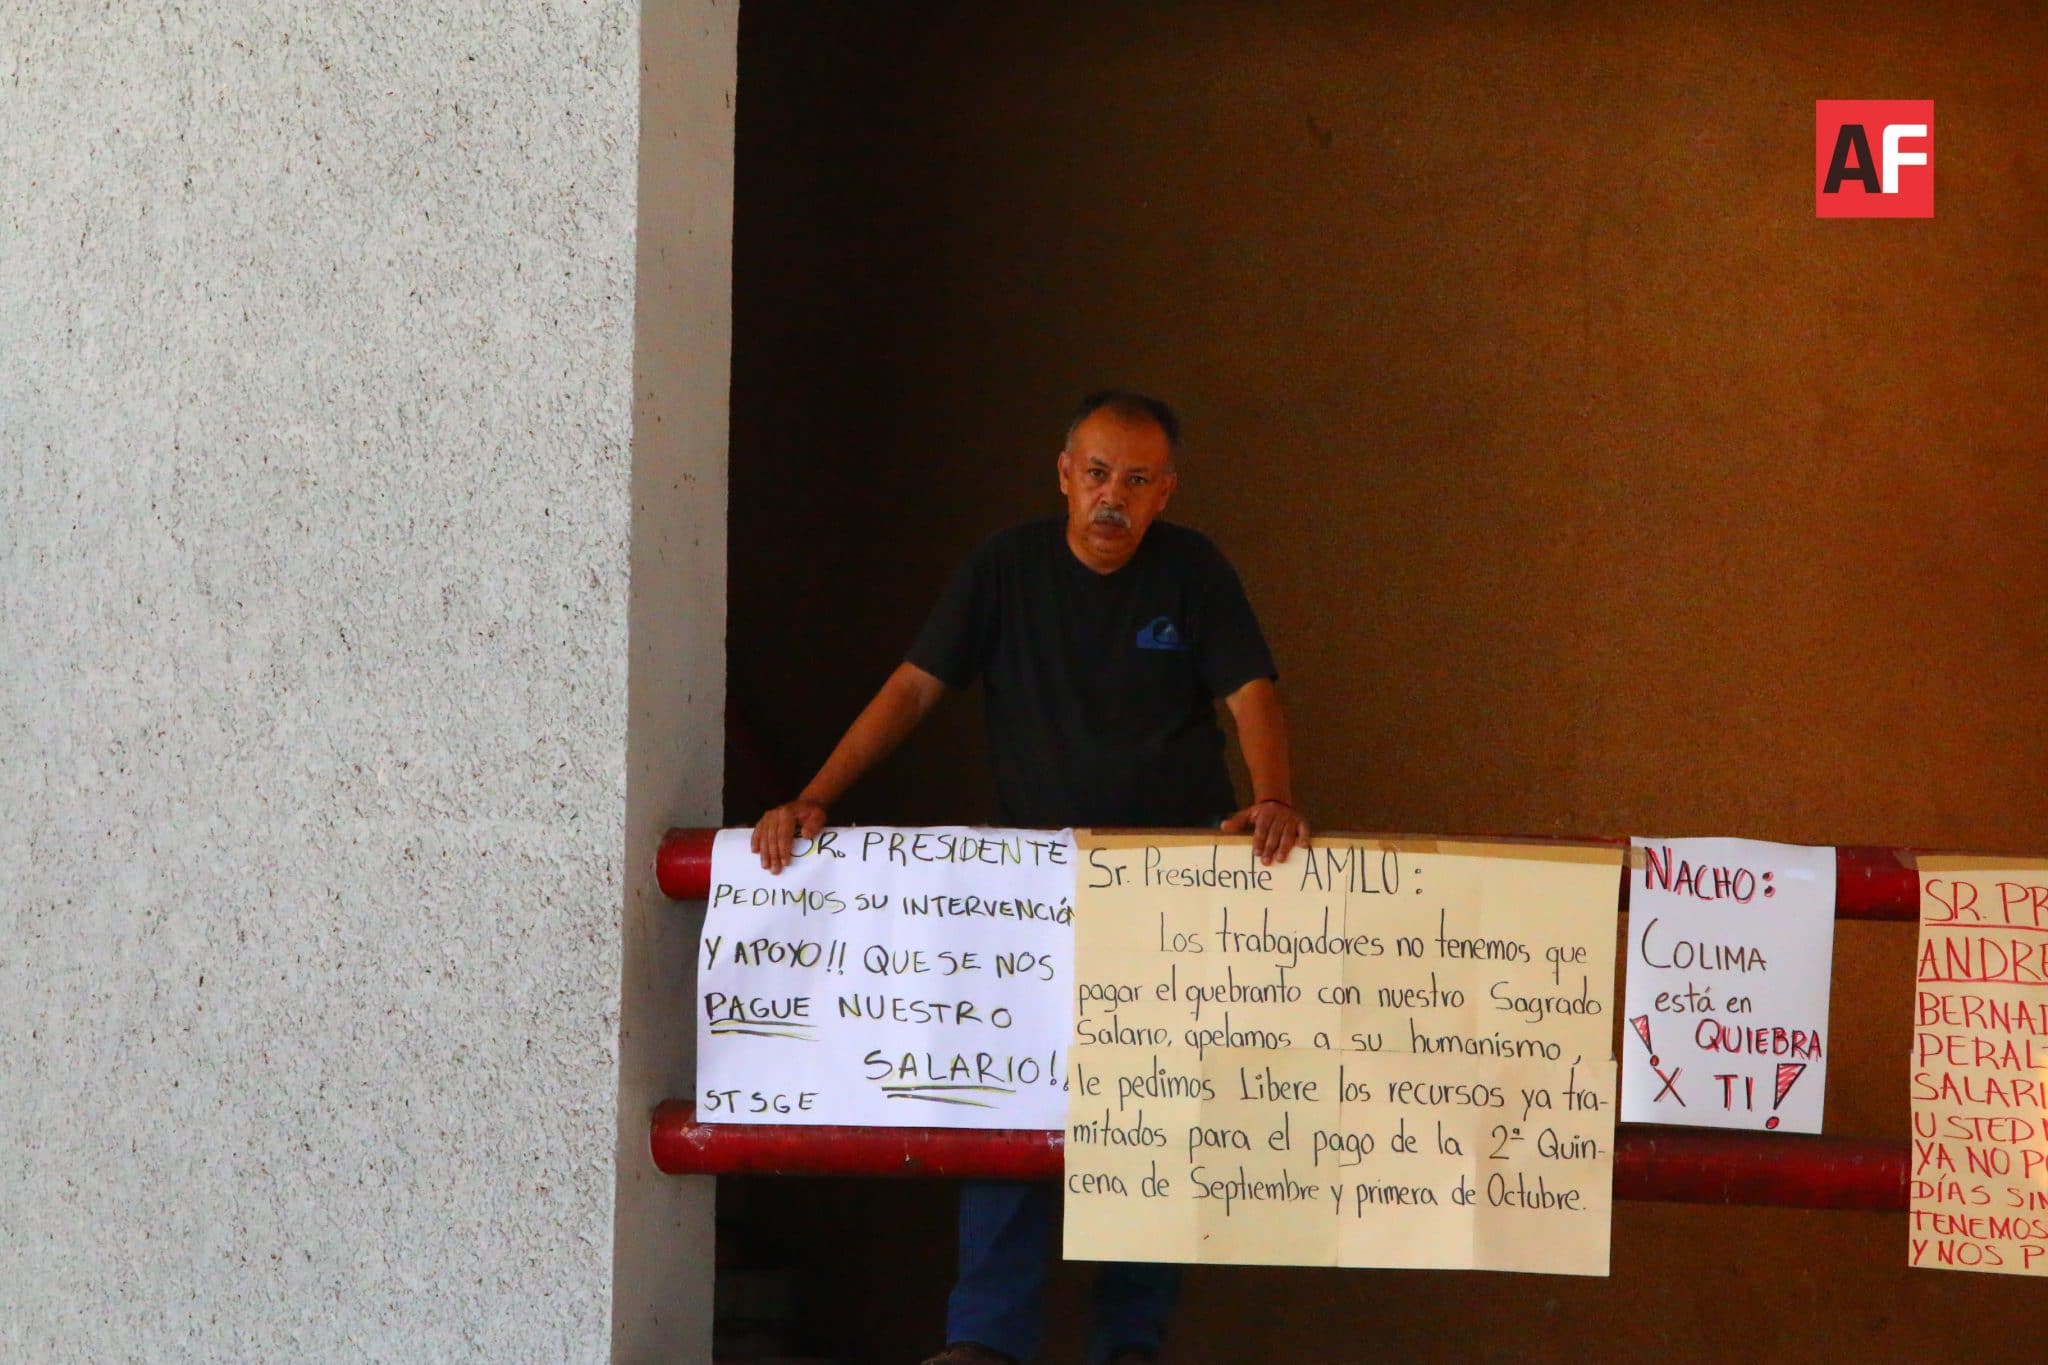 AF
SR. PRESIDENTE
PEDIMOS SU INTERVENCIÓN
Y APOYO!! QUE SE NOS
PAGUE NUESTRO
SALARIO!!
STSGE
Sr. Presidente AMLO:
Los trabajadores no tenemos que
pagar el quebranto con nuestro Sagrado
Salario, apelamos a su humanismo,
le pedimos Libere los recursos ya tra-
mitados para el pago de la 2ª Quin-
cena de Septiembre y primera de Octubre.
NACHO:
COLIMA
está en
¡QUIEBRA
X TI!
SR. PR
ANDRE
BERNA
PERAL
SALARI
USTED
YA NO P
DÍAS SIN
TENEMOS
Y NOS P